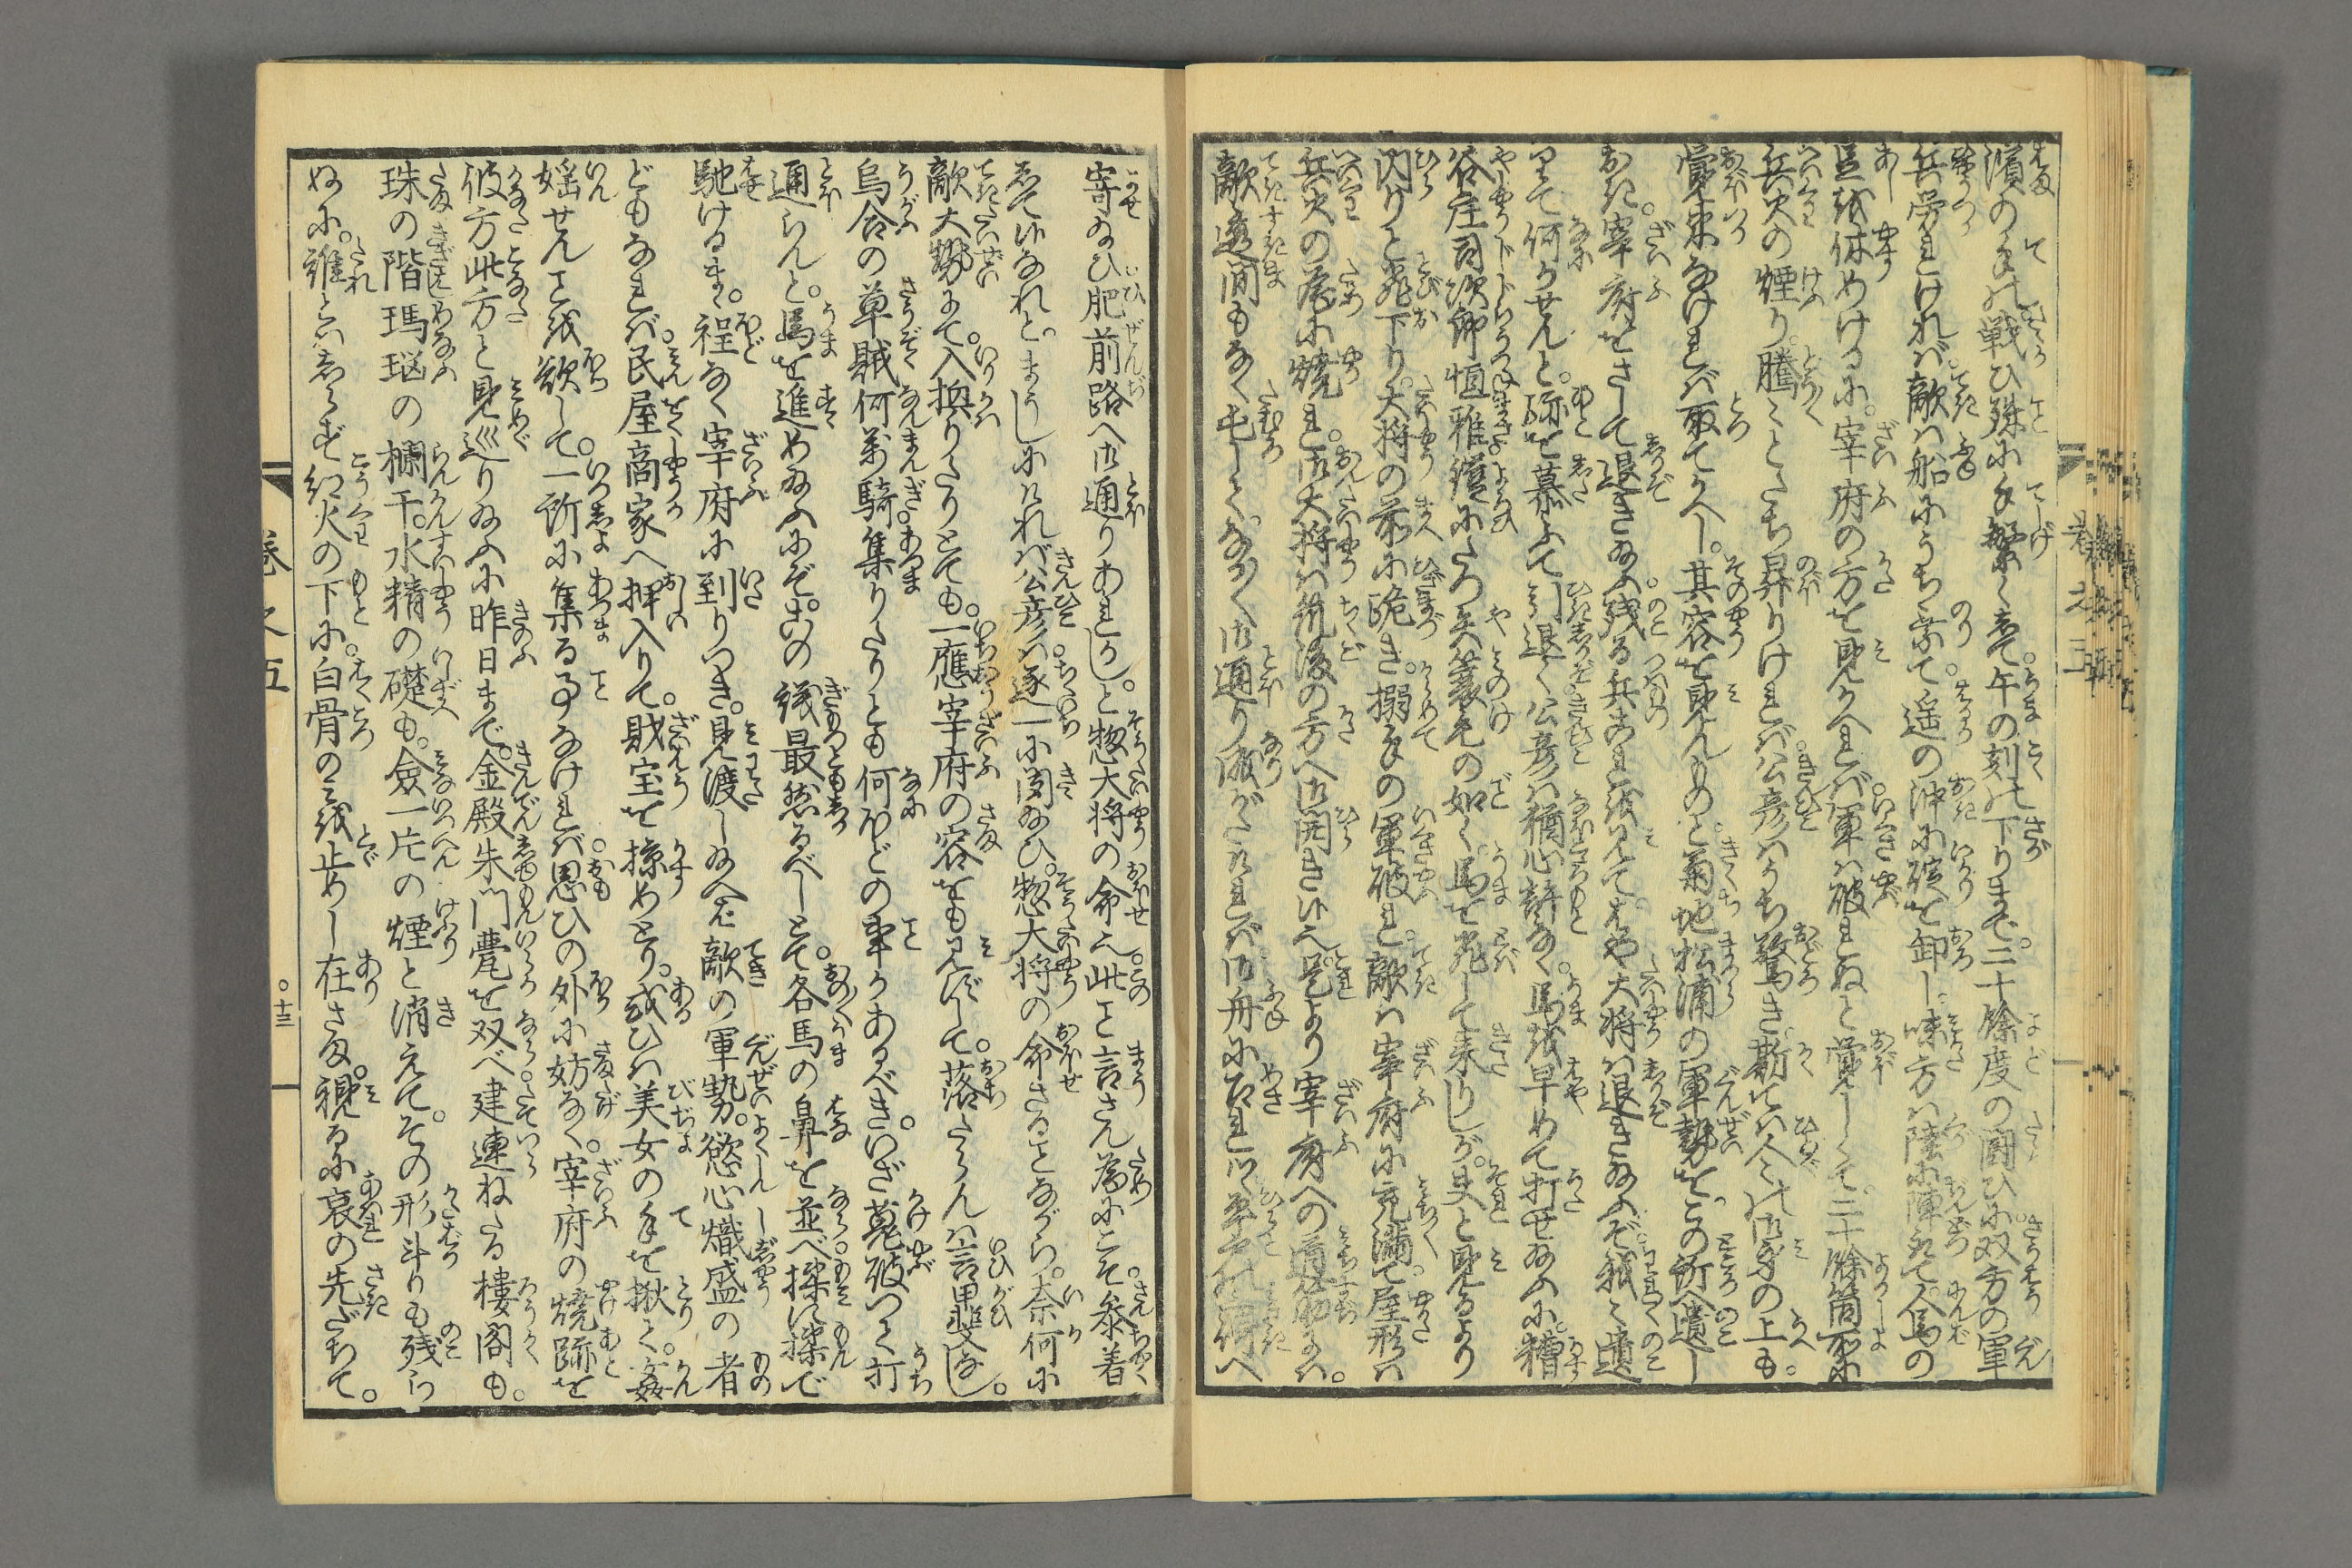 濱の手の戦ひ殊に手繁くして。午の刻の下りまで。三十餘度の闘ひに。双方の軍
兵労れければ。敵ハ船にうち乗て。遥の沖に碇を卸し。味方ハ陸に陣して。人馬の
息を休めけるに。宰府の方を見かへれバ。軍ハ破れぬと覚しくて。三十餘箇所に
兵火の煙り。騰々とたち昇りけれバ。公彦ハうち驚き。斯てハ人々の御身の上も。
覚束なけれバ取てかへし。其容を見んものと。菊地松浦の軍勢を。この所へ遺し
おき。宰府をさして退き給ふ。残る兵これを見て。はや大将ハ退き給ふぞ。我々遺
りて何かせんと。跡を慕ふて引退く。公彦ハ猶心許なく。馬を早めて打せ給ふに。糟
谷庄司次郎恒雅鎧にたつ矢簑毛の如く。馬を飛して来りしが。夫と見るより
閃りと飛下り。大将の前に跪き。搦手の軍破れ。敵ハ宰府に充満て。屋形ハ
兵火の為に焼れ。御大将ハ筑後の方へ御開き候へバ。是より宰府への道筋にハ。
敵透間もなく屯して。なか〳〵御通り成がたけれバ。御舟に召れ平戸の須へ
寄給ひ肥前路へ御通りあれかし。と惣大将の命也。此事言さん為にこそ。参着
して候なれと。まうしけれバ公彦ハ。逐一に聞給ひ。惣大将の命さることながら。奈何に
敵大勢にて。入換りたりとても。一應宰府の容をも見ずして。落たらんハ言甲斐なし。
烏合の草賊何萬騎集りたりとも何ほどの事かあるべき。いざ蒐破つて打
通らんと。馬を進め給ふにぞ。この議最然るべしとて。各馬の鼻を並べ。揉に揉で
馳けるまゝ。程なく宰府に到りつき。見渡し給へバ敵の軍勢。慾心熾盛の者
どもなれバ。民屋商家へ押入りて。財宝を掠めとり。或ひハ美女の手を揪て。姦
婬せん事を欲して。一所に集る事なけれバ。思ひの外に妨なく。宰府の焼跡を
彼方此方と見巡り給ふに。昨日まで。金殿朱門甍を双べ。建連ねたる樓閣も。
珠の階瑪瑙の欄干。水精の礎も。僉一片の煙と消えて。その形斗りも残ら
ぬに。誰とハしらず紅火の下に。白骨のミを止めし在さま。視るに哀の先だちて。
巻之五
○十三